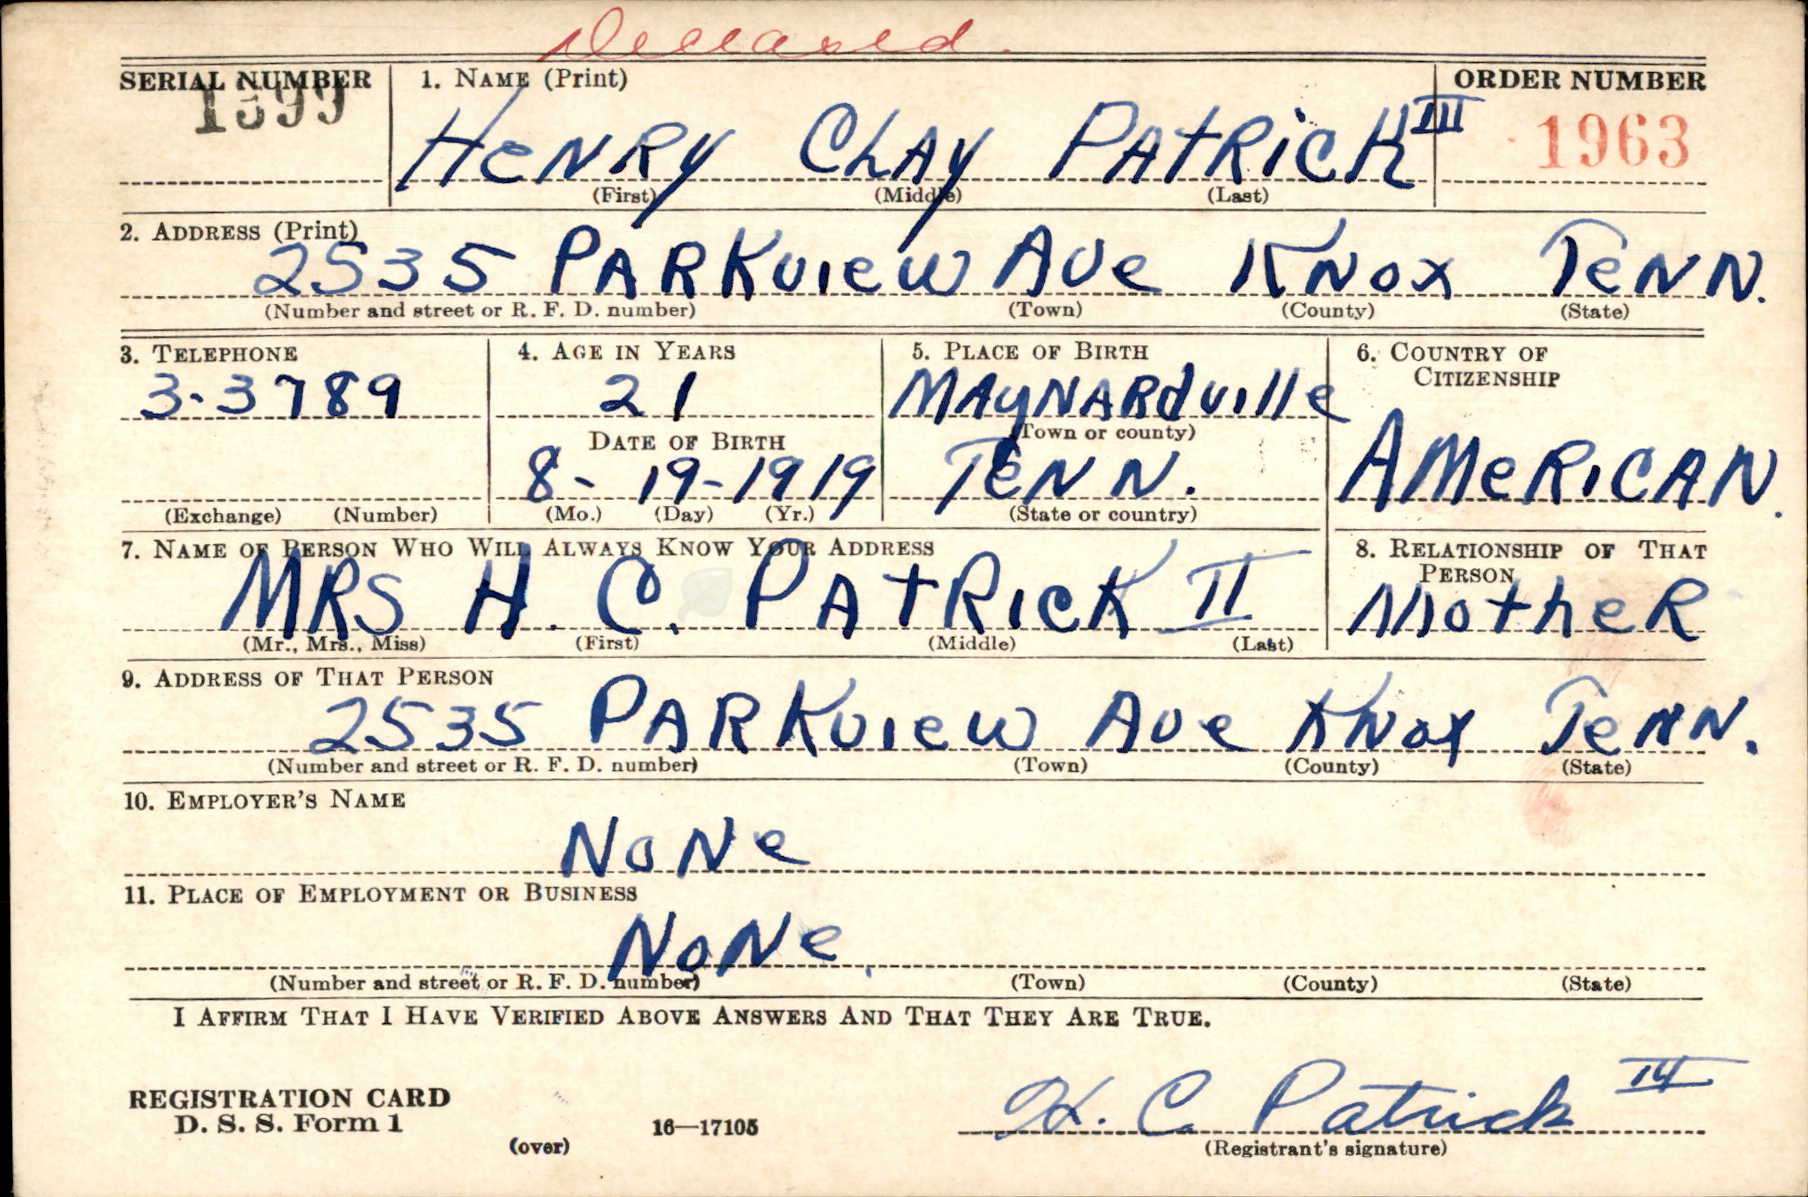 Deceased.
SERIAL NUMBER 1. NAME (Print) ORDER NUMBER
1599 HeNRY CLAY PATRicK III 1963
(First) (Middle) (Last)
2. ADDRESS (Print)
2535 PARKview Ave KNox TeNN.
(Number and street or R. F. D. number) (Town) (County) (State)
3. TELEPHONE 4. AGE IN YEARS 5. PLACE OF BIRTH 6. COUNTRY OF CITIZENSHIP
3-3789 21 MAyNARdville
(Town or county)
DATE OF BIRTH
8- 19-1919 TENN. AMeRiCAN.
(Exchange) (Number) (Mo.) (Day) (Yr.) (State or country)
7. NAME OF PERSON WHO WILL ALWAYS KNOW YOUR ADDRESS 8. RELATIONSHIP OF THAT PERSON
MRS H. C. PAtRicK II MotheR
(Mr., Mrs., Miss) (First) (Middle) (Last)
9. ADDRESS OF THAT PERSON
2535 PARKview Ave KNox TeNN.
(Number and street or R. F. D. number) (Town) (County) (State)
10. EMPLOYER'S NAME
NoNe
11. PLACE OF EMPLOYMENT OR BUSINESS
NoNe.
(Number and street or R. F. D. number) (Town) (County) (State)
I AFFIRM THAT I HAVE VERIFIED ABOVE ANSWERS AND THAT THEY ARE TRUE.
REGISTRATION CARD
D. S. S. Form 1
(over) 16—17105
H. C. Patrick III
(Registrant's signature)